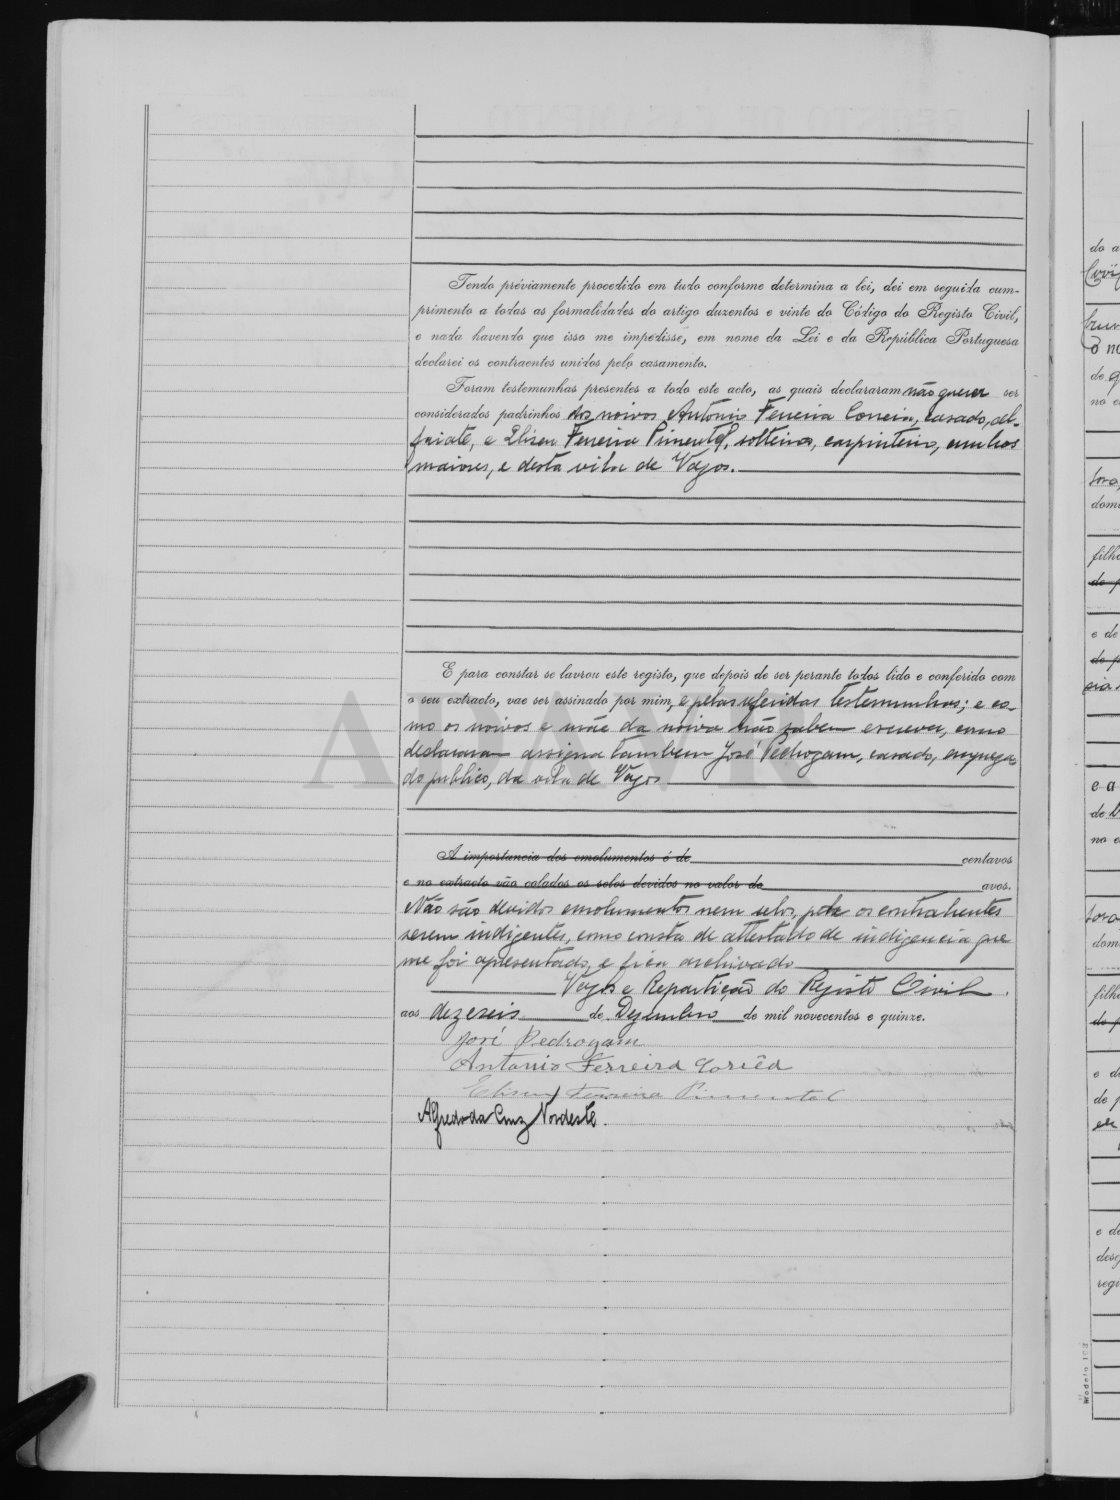 Tendo préviamente procedido em tudo conforme determina a lei, dei em seguida cum-
primento a todas as formalidades do artigo duzentos e vinte do Código do Registo Civil,
e nada havendo que isso me impedisse, em nome da Lei e da República Portuguesa
declarei os contraentes unidos pelo casamento.
Foram testemunhas presentes a todo este acto, as quais declararam não querer ser
considerados padrinhos dos noivos Antonio Ferreira Correia, casado, al-
faiate, e Eliseu Ferreira Pimentel, solteiro, carpinteiro, ambos
maiores, e desta vila de Vagos.
E para constar se lavrou este registo, que depois de ser perante todos lido e conferido com
o seu extracto, vae ser assinado por mim, e pelas referidas testemunhas; e co-
mo os noivos e mãe da noiva não sabem escrever, como
declararam assigna tambem José Pedrogam, casado, emprega-
do publico, da vila de Vagos
A importancia dos emolumentos é de centavos
e no extracto vão colados os selos devidos no valor de avos.
Não são devidos emolumentos nem selos, por os contrahentes
serem indigentes, como consta de attestado de indigencia que
me foi apresentado, e fica archivado
Vagos e Repartição do Registo Civil
aos dezeseis de Dezembro de mil novecentos e quinze.
José Pedrogam
Antonio Ferreira Corrêa
Eliseu Ferreira Pimentel
Alfredo da Cruz Nordeste.
do a
o no
de
no e
dom
filh
do p
e de
do p
e a
de D
no e
dom
filh
do p
e d
de p
e de
des
regi
Modelo 103